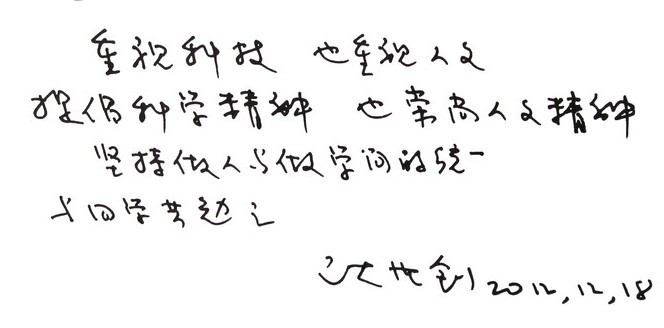 重视科技 也重视人文
提倡科学精神 也崇尚人文精神
坚持做人与做学问的统一
与同学共勉之
沈世钊 2012,12,18